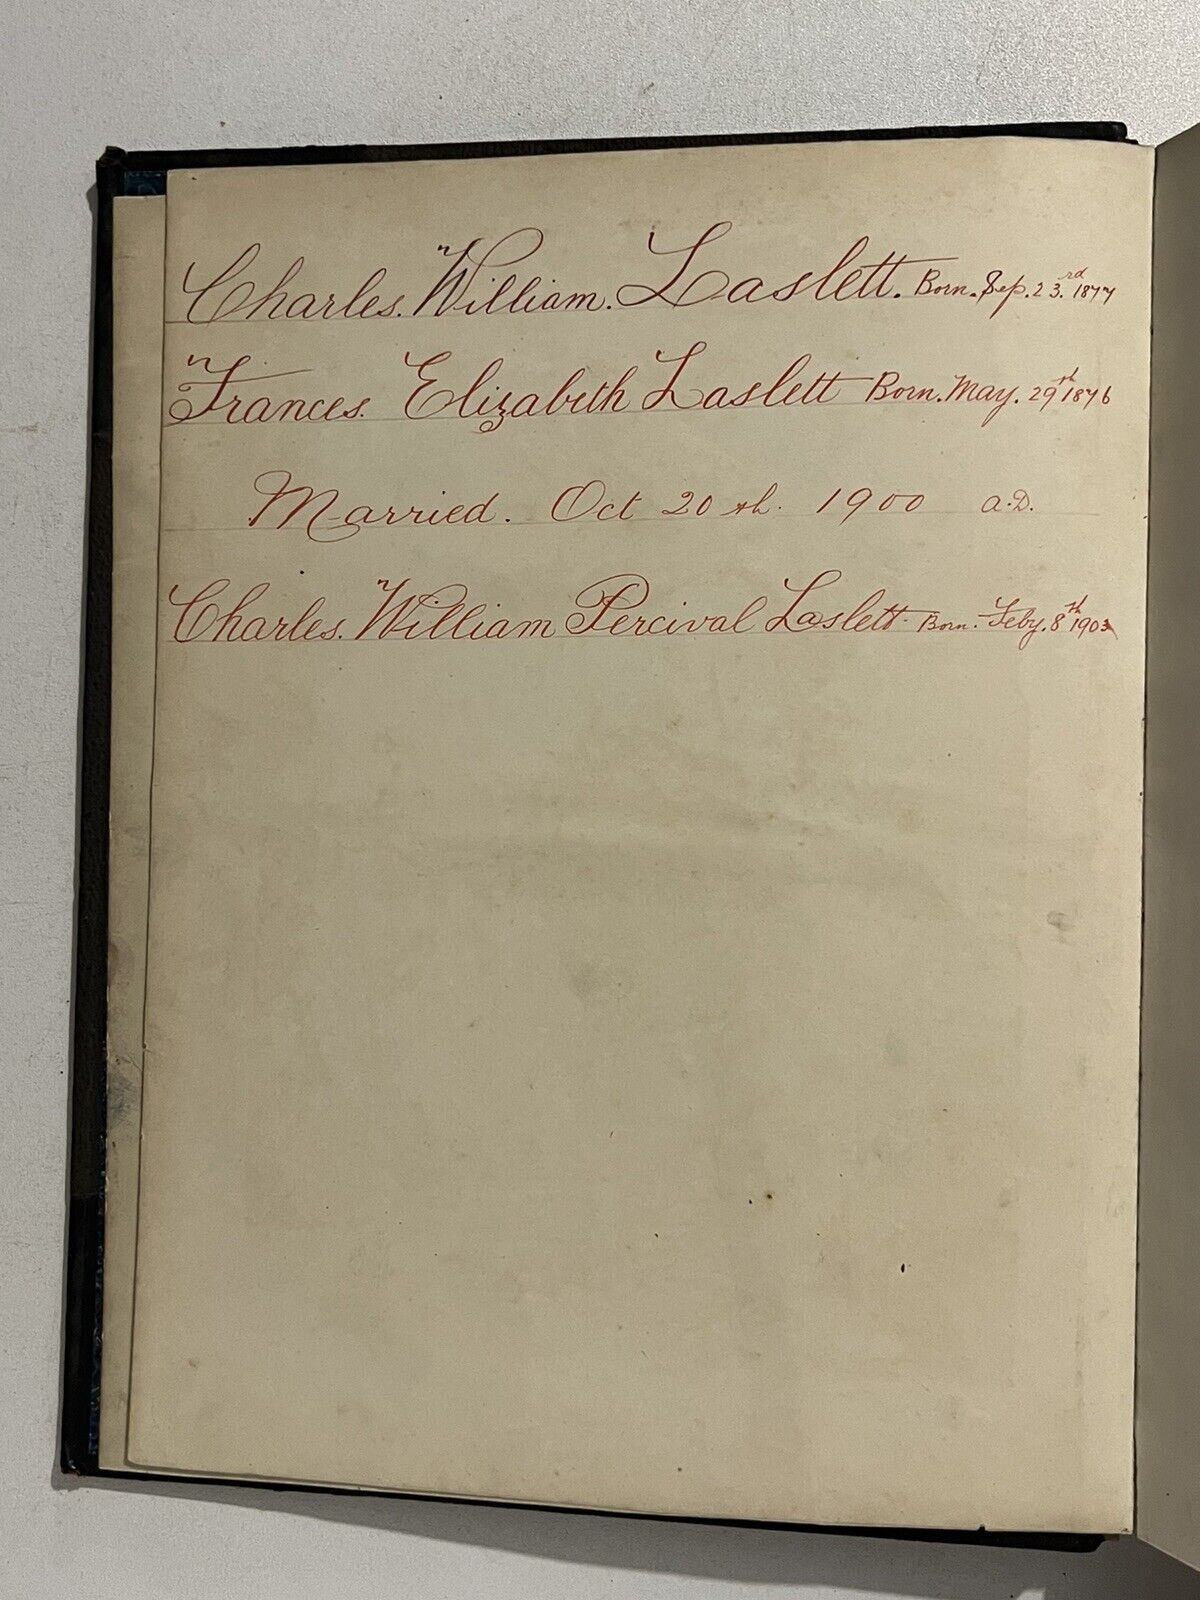 Charles. William. Laslett. Born. Sep. 23.rd 1877
Frances. Elizabeth Laslett Born. May. 29th 1876
Married. Oct 20th. 1900 A.D.
Charles. William Percival Laslett. Born. Feby. 8th 1903